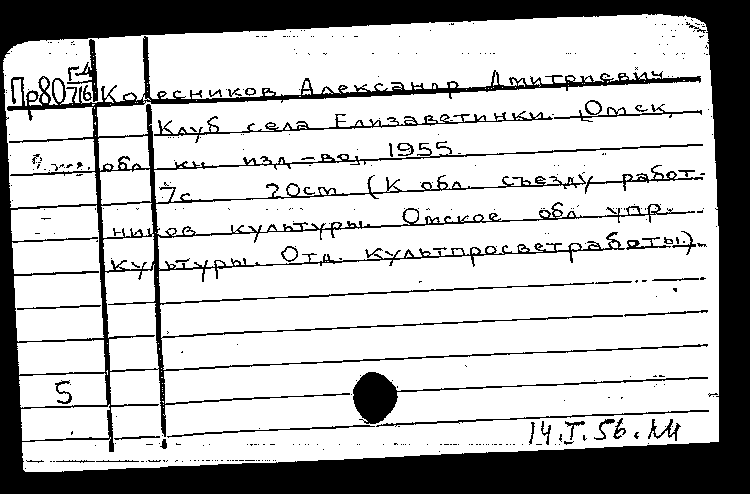 Пр80 Г-4/716 Колесников, Александр Дмитриевич
Клуб села Елизаветинки. [Омск,
обл. кн. изд-во], 1955.
7с. 20см. (К обл. съезду работ-
ников культуры. Омское обл. упр.
культуры. Отд. культпросветработы.)
5
14.I.56.